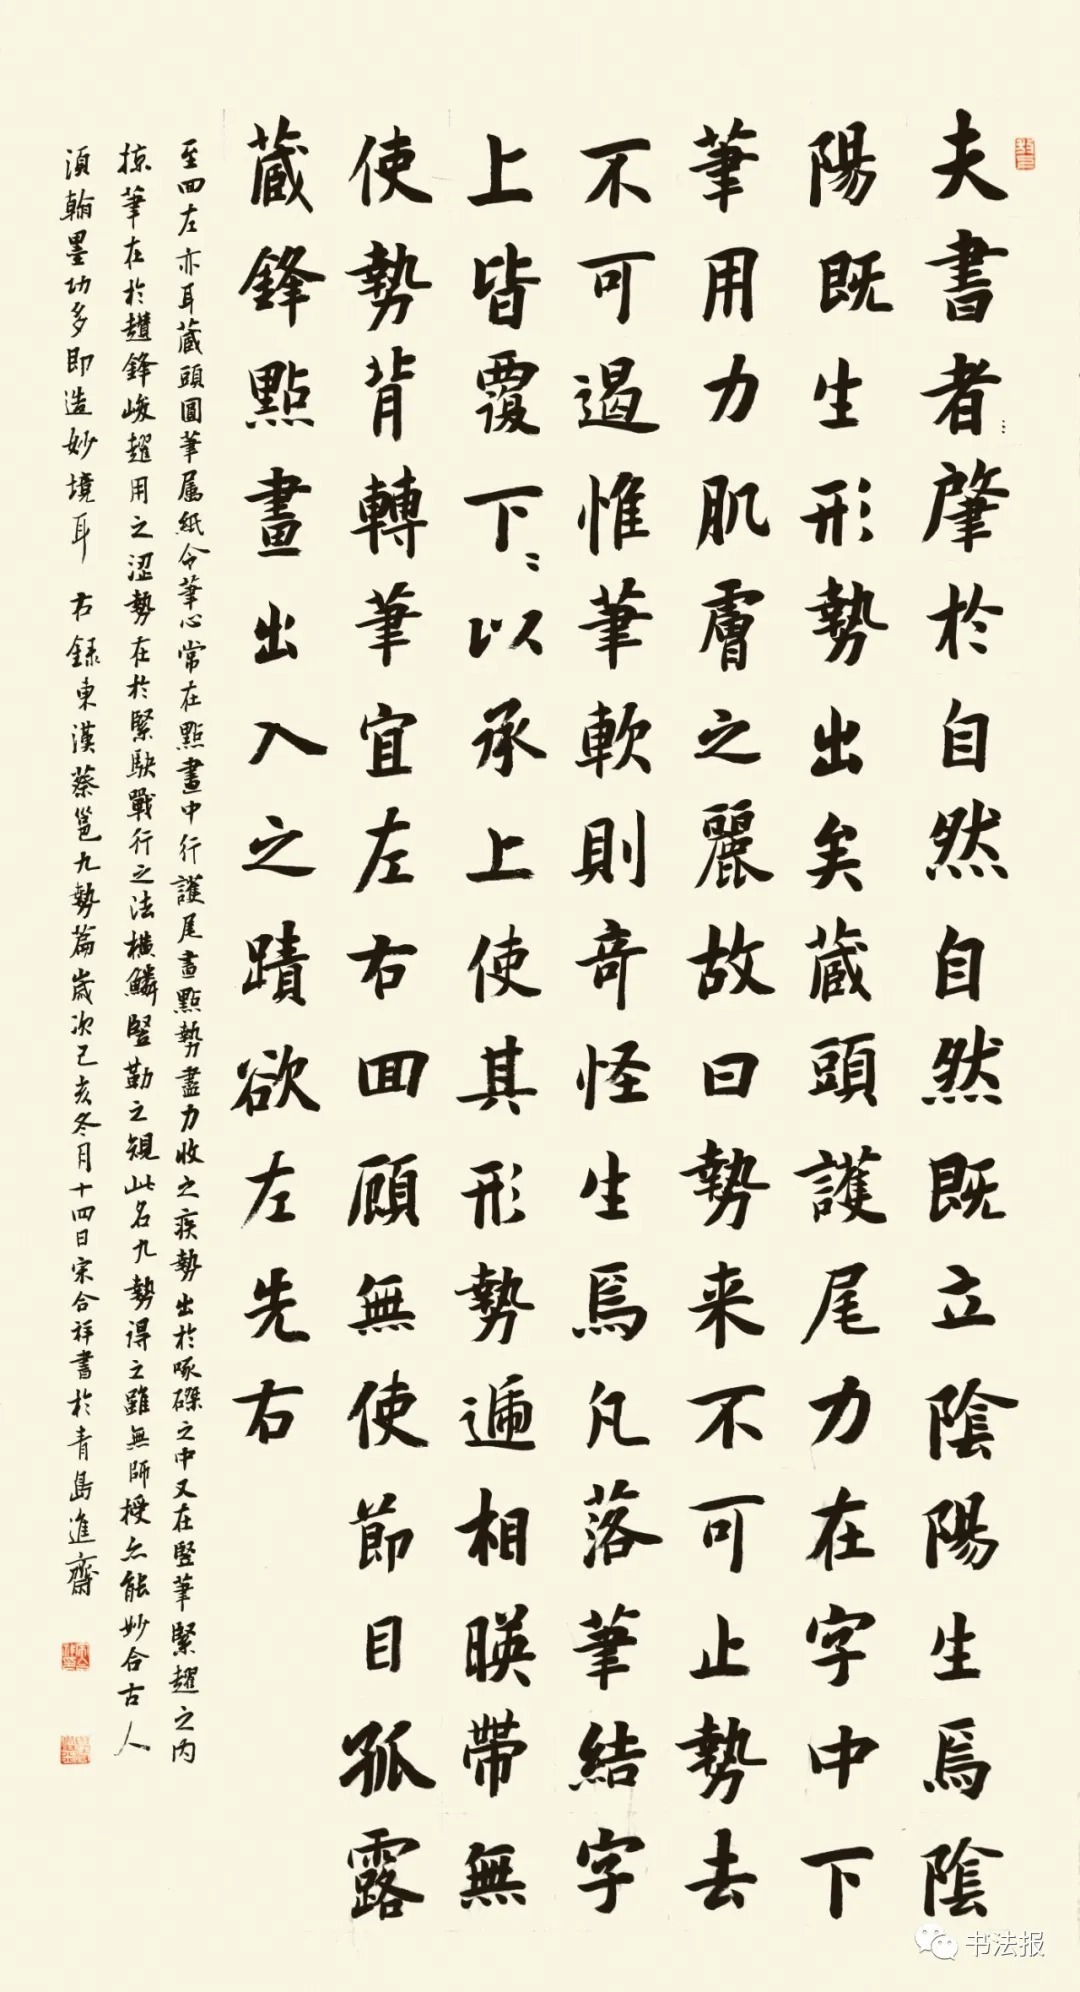 夫書者肇於自然自然既立陰陽生焉陰
陽既生形勢出矣藏頭護尾力在字中下
筆用力肌膚之麗故曰勢来不可止勢去
不可遏惟筆軟則奇怪生焉凡落筆結字
上皆覆下〻以承上使其形勢遞相暎帶無
使勢背轉筆宜左右回顧無使節目孤露
藏鋒點畫出入之蹟欲左先右
至回左亦耳藏頭圓筆属紙令筆心常在點畫中行護尾畫點勢盡力收之疾勢出於啄磔之中又在竪筆緊趯之内
掠筆在於趲鋒峻趯用之澀勢在於緊駃戰行之法橫鱗竪勒之規此名九勢得之雖無師授亦能妙合古人
須翰墨功多即造妙境耳 右録東漢蔡邕九勢篇歲次己亥冬月十四日宋合祥書於青島進齋
书法报